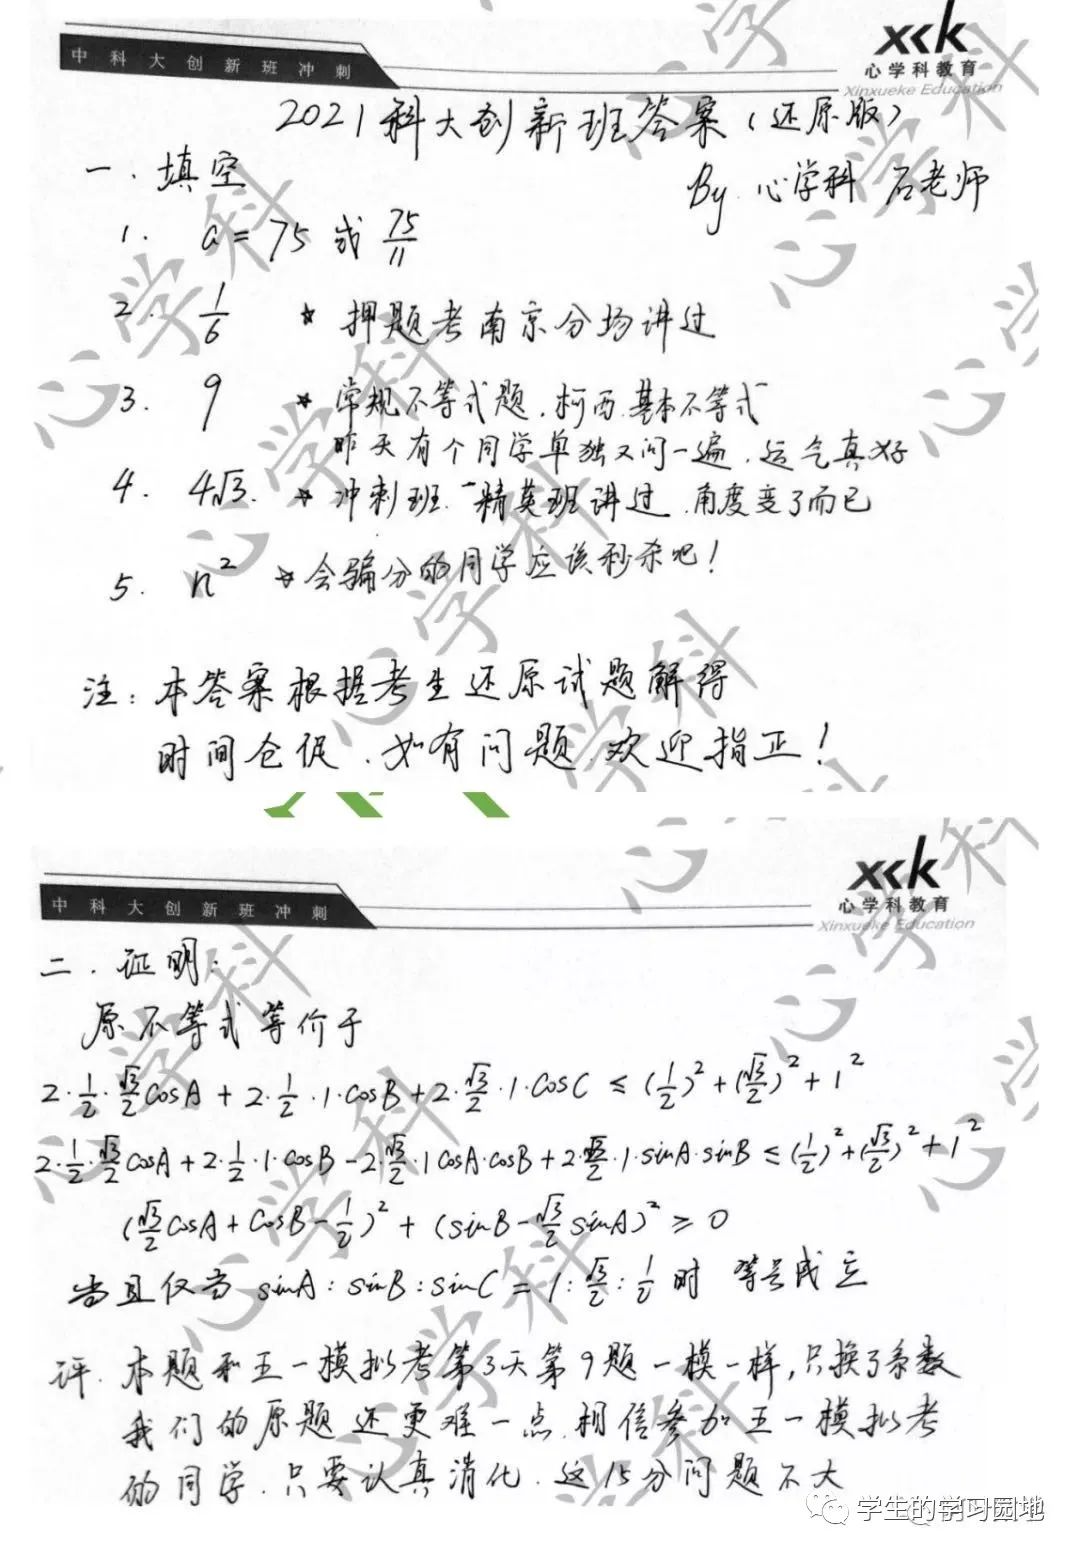 中科大创新班冲刺
xck
心学科教育
Xinxueke Education
2021科大创新班答案（还原版）
一．填空
By 心学科 石老师
1. a = 75 或 75/11
2. 1/6 ★ 押题考南京分场讲过
3. 9 ★ 常规不等式题．柯西．基本不等式
昨天有个同学单独又问一遍．运气真好
4. 4√3. ★ 冲刺班．精英班讲过．角度变了而已
5. n² ★ 会骗分的同学应该秒杀吧！
注：本答案根据考生还原试题解得
时间仓促．如有问题．欢迎指正！
中科大创新班冲刺
xck
心学科教育
Xinxueke Education
二．证明：
原不等式等价于
2·1/2·√3/2 cosA + 2·1/2·1·cosB + 2·√3/2·1·cosC ≤ (1/2)² + (√3/2)² + 1²
2·1/2·√3/2 cosA + 2·1/2·1·cosB − 2·√3/2·1 cosA·cosB + 2·√3/2·1·sinA·sinB ≤ (1/2)² + (√3/2)² + 1²
(√3/2 cosA + cosB − 1/2)² + (sinB − √3/2 sinA)² ≥ 0
当且仅当 sinA : sinB : sinC = 1 : √3/2 : 1/2 时 等号成立
评．本题和五一模拟考第3天第9题一模一样，只换了系数
我们的原题还更难一点．相信参加五一模拟考
的同学．只要认真消化．这15分问题不大
学生的学习园地
心学科